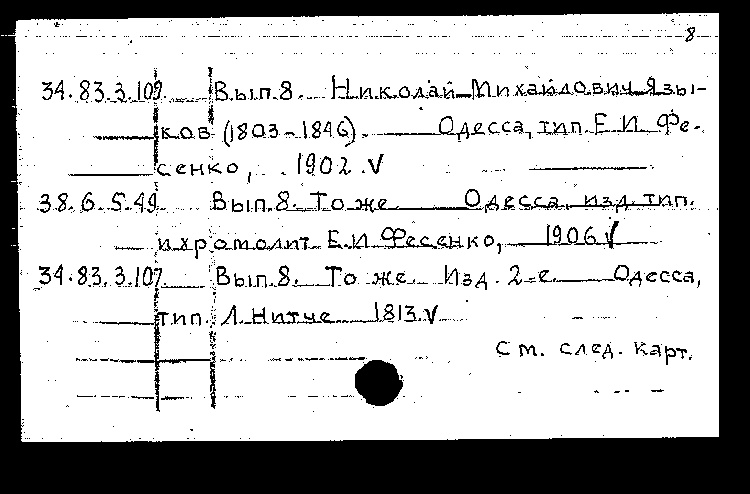 8
34.83.3.109. Вып.8. Николай Михайлович Язы-
ков (1803-1846). Одесса, тип. Е.И. Фе-
сенко, 1902.V
38.6.5.49. Вып.8. То же. Одесса, изд. тип.
и хромолит. Е.И. Фесенко, 1906.V
34.83.3.107. Вып.8. То же. Изд. 2-е. Одесса,
тип. Л. Нитче. 1813.V
См. след. карт.